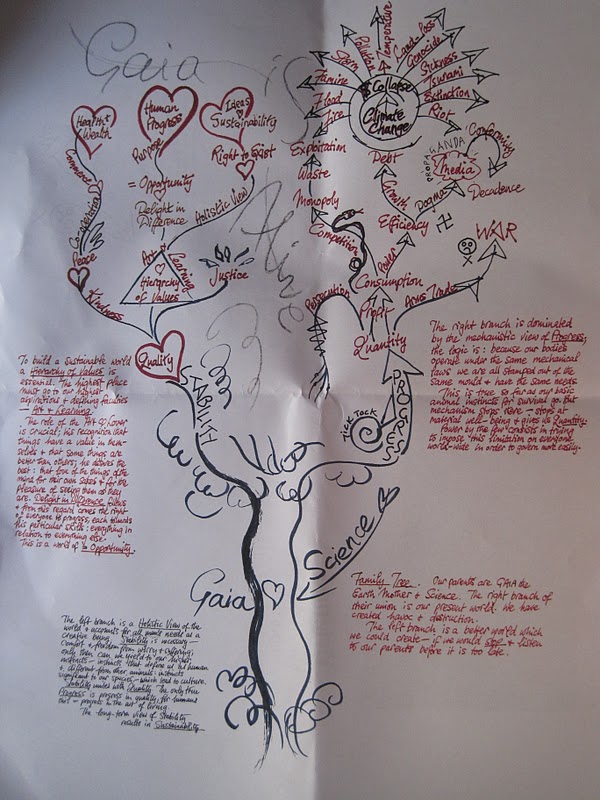 Gaia is
Alive
Health & Wealth
Human Progress
Ideas Sustainability
Community
Purpose
Right to Exist
= Opportunity
Delight in Difference
Holistic View
Co-operation
Peace
Kindness
Art & Learning
Hierarchy of Values
Justice
Quality
STABILITY
Temperature
Pollution
Land-Loss
Storm
Genocide
Famine
Sickness
Flood
Tsunami
Fire
Extinction
Riot
$ Collapse
Climate Change
Exploitation
Debt
Waste
Monopoly
Competition
Growth
Dogma
PROPAGANDA
Media
Conformity
Decadence
Efficiency
WAR
Power
Consumption
Persecution
Profit
Arms Trade
Quantity
PROGRESS
TICK TOCK
Gaia
Science
To build a sustainable world
a Hierarchy of Values is
essential. The highest place
must go to our highest
aspirations & defining faculties
— Art & Learning.
The role of the Art of Lover
is crucial; his recognition that
things have a value in them-
selves & that some things are
better than others; he desires the
best: that love of the things of the
mind for their own sakes & for the
pleasure of seeing them as they
are. Delight in Difference follows
& from this regard comes the right
of everyone to progress, each towards
his particular skills: everything in
relation to everything else.
This is a world of Opportunity.
The right branch is dominated
by the mechanistic view of Progress;
the logic is: because our bodies
operate under the same mechanical
laws we are all stamped out of the
same mould & have the same needs.
This is true so far as our basic
animal instincts for survival go. But
mechanism stops here — stops at
material well-being & gives us Quantity.
Power by the few consists in trying
to impose this limitation on everyone
world-wide in order to govern more easily.
The left branch is a Holistic View of the
world & accounts for all man's needs as a
creative being. Stability is necessary —
comfort & freedom from worry & suffering;
only then can we tend to our higher
instincts — instincts that define us as human
& different from other animals: instincts
significant to our species — which lead to culture.
Stability united with Quality. The only true
Progress is progress in quality, for humans
that — progress in the art of living.
The long-term view of Stability
results in Sustainability
Family Tree. Our parents are GAIA the
Earth Mother & Science. The right branch of
their union is our present world. We have
created havoc & destruction.
The left branch is a better world which
we could create — if we would stop & listen
to our parents before it is too late.